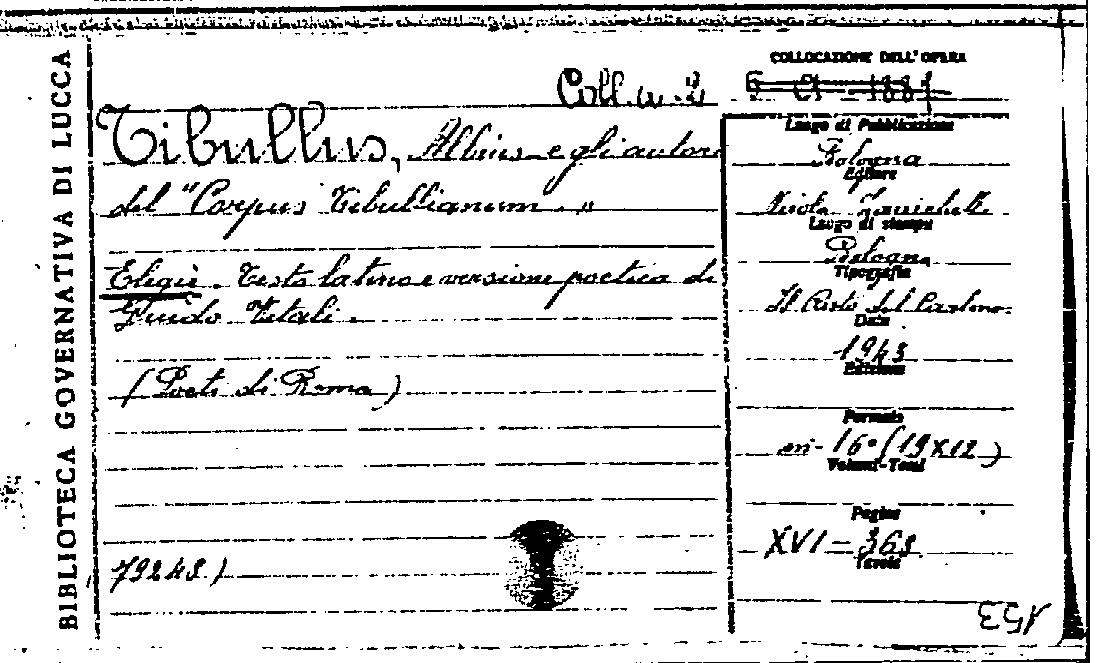 BIBLIOTECA GOVERNATIVA DI LUCCA
COLLOCAZIONE DELL'OPERA
Coll. 2
Tibullus, Albius e gli autori
del "Corpus Tibullianum."
Elegie. Testo latino e versione poetica di
Guido Vitali.
(Poeti di Roma)
79243)
Luogo di Pubblicazione
Bologna
Editore
Nicola Zanichelli
Luogo di stampa
Bologna
Tipografia
Il Resto del Carlino.
Data
1943
Edizione
Formato
in-16°(19x12)
Volumi-Tomi
Pagine
XVI-363
Tavole
153